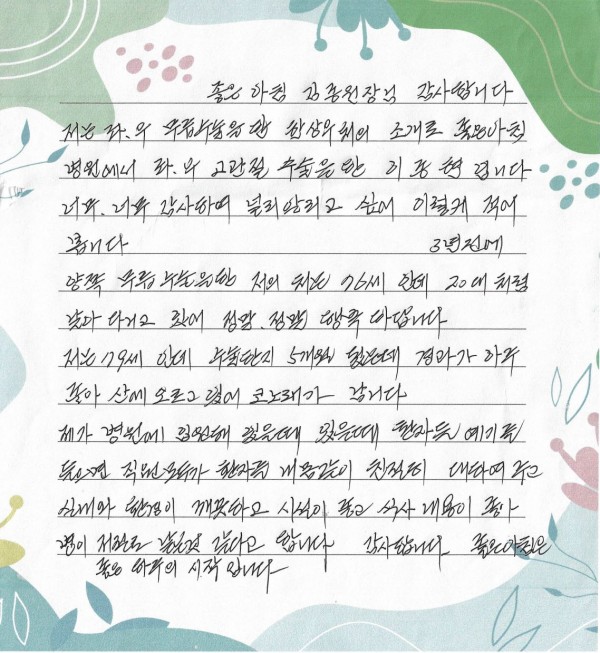 좋은 아침 김종원장님 감사합니다
저는 좌.우 무릎수술을한 한상우처의 소개로 좋은아침
병원에서 좌.우 고관절 수술을한 이종현 입니다
너무.너무 감사하며 널리알리고 싶어 이렇게 적어
봅니다 3년전에
양쪽 무릎수술을한 저의 처는 76세 인데 20대처럼
날라 다니고 있어 정말.정말 행복 합니다
저는 79세 인데 수술한지 5개월 됬는데 경과가 아주
좋아 산에 오르고 있어 코노래가 납니다
제가 병원에 입원해 있을때 있을때 환자들 얘기를
들으면 직원 모두가 환자를 내몸같이 친절히 대하여 주고
실내와 환경이 깨끗하고 시설이 좋고 식사 내용이 좋아
병이 저절로 낳는것 같다고 합니다 감사합니다 좋은아침은
좋은 하루의 시작 입니다